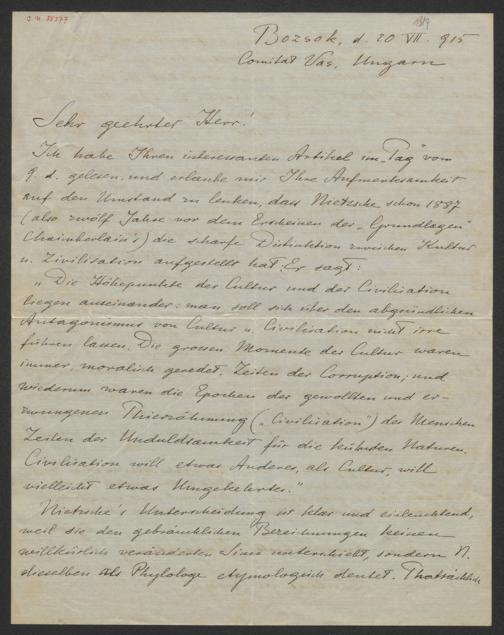 J. N. 88377
189
Bozsok, d. 20 VII. 915
Comitat Vas, Ungarn
Sehr geehrter Herr!
Ich habe Ihren interessanten Artikel im „Tag" vom
9 d. gelesen, und erlaube mir Ihre Aufmerksamkeit
auf den Umstand zu lenken, dass Nietzsche schon 1887
(also zwölf Jahre vor dem Erscheinen der „Grundlagen"
Chamberlain's) die scharfe Distinktion zwischen Kultur
u. Zivilisation aufgestellt hat. Er sagt:
„Die Höhepunkte der Cultur und der Civilisation
liegen auseinander: man soll sich über den abgründlichen
Antagonismus von Cultur u. Civilisation nicht irre
führen lassen. Die grossen Momente der Cultur waren
immer, moralisch geredet, Zeiten der Corruption; und
wiederum waren die Epochen der gewollten und er-
zwungenen Thierzähmung („Civilisation") des Menschen
Zeiten der Unduldsamkeit für die kühnsten Naturen.
Civilisation will etwas Anderes, als Cultur, will
vielleicht etwas Umgekehrtes."
Nietzsche's Unterscheidung ist klar und einleuchtend,
weil sie den gebräuchlichen Bezeichnungen keinen
willkürlich veränderten Sinn unterschiebt, sondern N.
dieselben als Phylologe etymologisch deutet. Thatsächlich